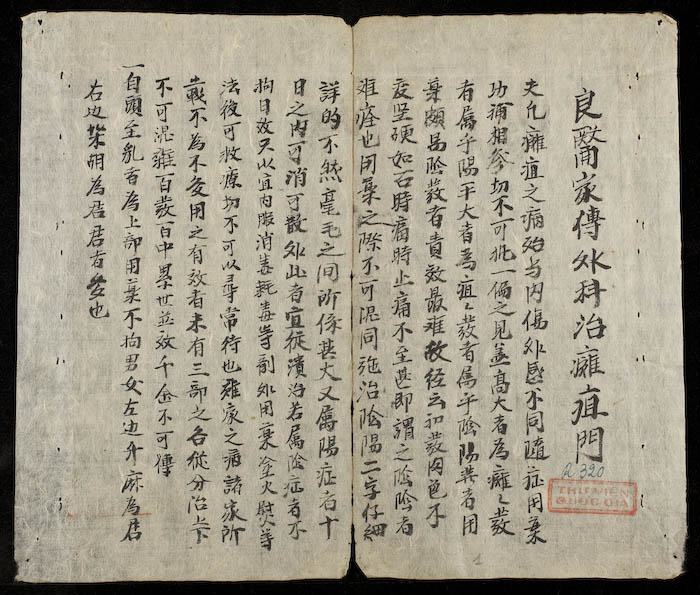 良醫家傳外科治癰疽門
夫凡癰疽之病始与內傷外感不同隨症用藥
功補相參切不可執一偏之見蓋高大者為癰〻發
者属乎陽平大者為疽〻發者属乎陰陽其者用
藥頗易陰發者責效最难故経云初發肉色不
变坚硬如石時痛時止痛不至甚即謂之陰陰者
难痊也用藥之際不可混同施治陰陽二字仔細
詳的不然毫毛之間所係甚大又属陽症者十
日之內可消可散外此者宜從潰治若属陰症者不
拘日效只以宜內服消毒托毒等劑外用藥塗火熨等
法後可救療切不可以尋常待也难家之病諸家所
載不為不多用之有效者未有三部之名從分治上下
不可混雜百發百中累世並效千金不可傳
一自頭至乳者為上部用藥不拘男女左边升麻為君
右边柴胡為君君者多也
R.320
THƯ VIỆN
QUỐC GIA